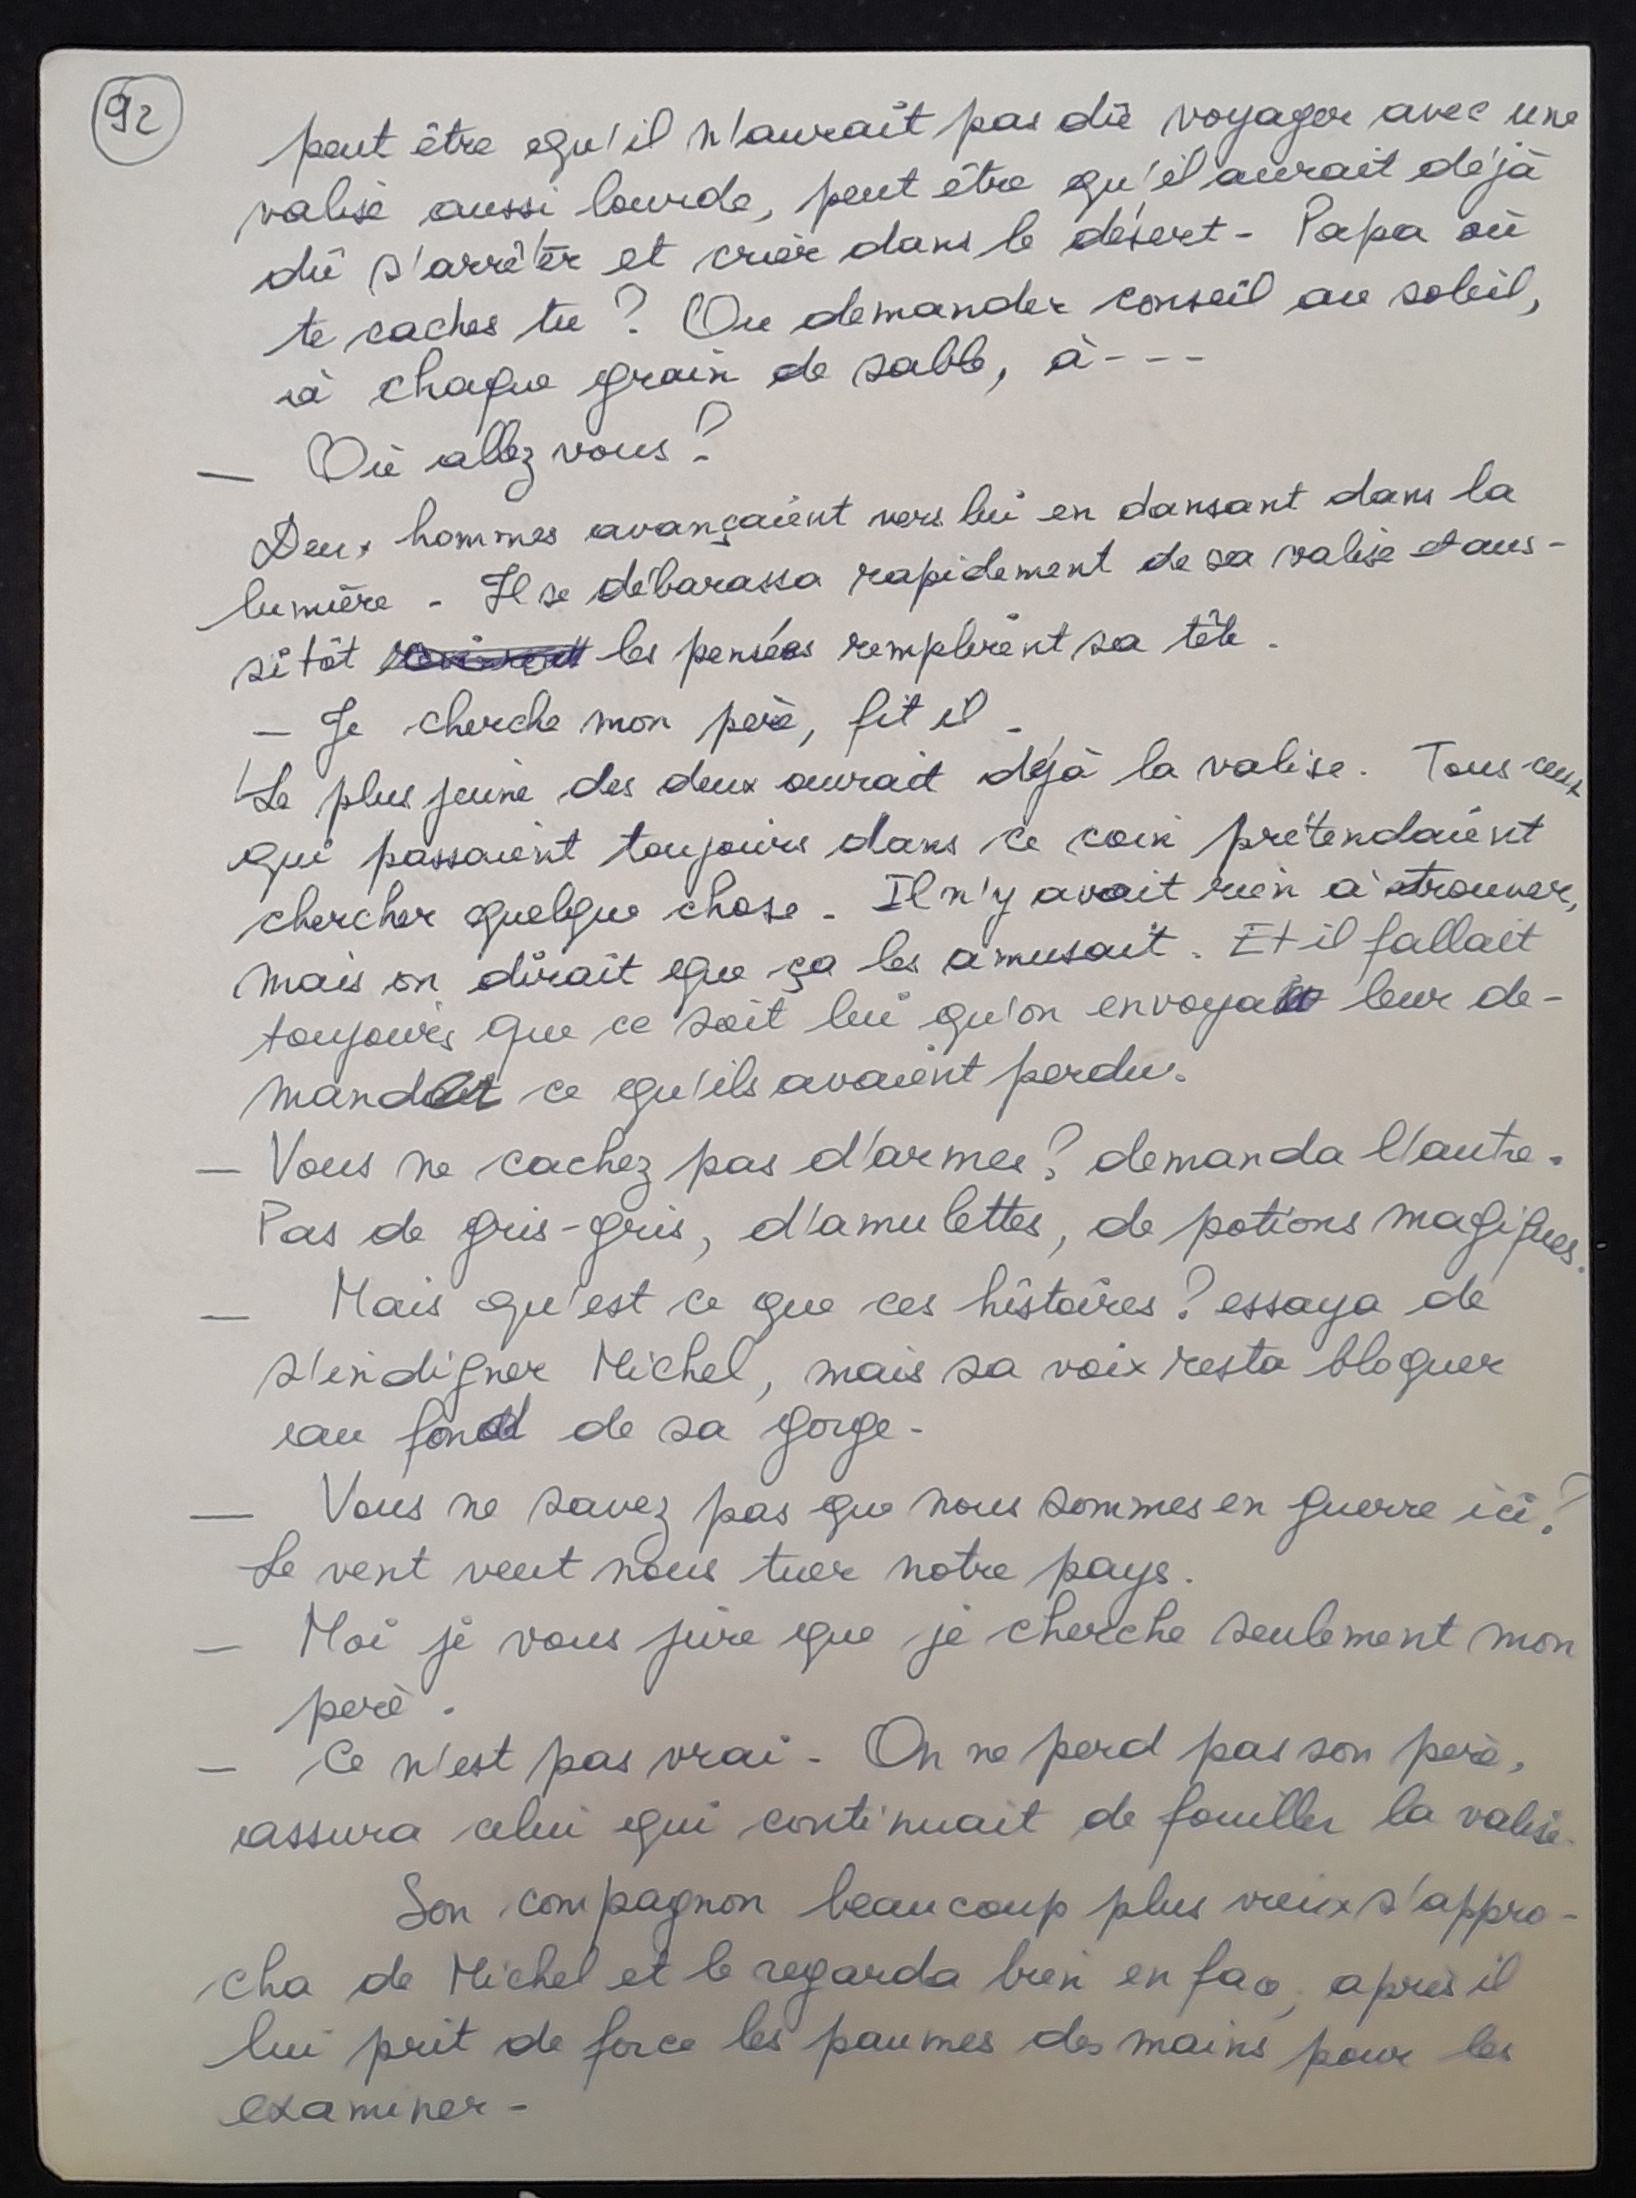 92
peut être qu'il n'aurait pas dû voyager avec une
valise aussi lourde, peut être qu'il aurait déjà
dû s'arrêter et crier dans le désert - Papa où
te caches tu ? Ou demander conseil au soleil,
à chaque grain de sable, à - - -
— Où allez vous ?
Deux hommes avançaient vers lui en dansant dans la
lumière - Il se débarassa rapidement de sa valise et aus-
sitôt les pensées remplirent sa tête .
— Je cherche mon père, fit il -
Le plus jeune des deux ouvrait déjà la valise. Tous ceux
qui passaient toujours dans ce coin prétendaient
chercher quelque chose - Il n'y avait rien à trouver,
mais on dirait que ça les amusait . Et il fallait
toujours que ce soit lui qu'on envoyait leur de-
mander ce qu'ils avaient perdu.
— Vous ne cachez pas d'armes ? demanda l'autre.
Pas de gris-gris, d'amulettes, de potions magiques.
— Mais qu'est ce que ces histoires ? essaya de
s'indigner Michel, mais sa voix resta bloquer
au fond de sa gorge -
— Vous ne savez pas que nous sommes en guerre ici ?
Le vent veut nous tuer notre pays.
— Moi je vous jure que je cherche seulement mon
père .
— Ce n'est pas vrai - On ne perd pas son père,
assura celui qui continuait de fouiller la valise.
Son compagnon beaucoup plus vieux s'appro-
cha de Michel et le regarda bien en face, après il
lui prit de force les paumes des mains pour les
examiner -